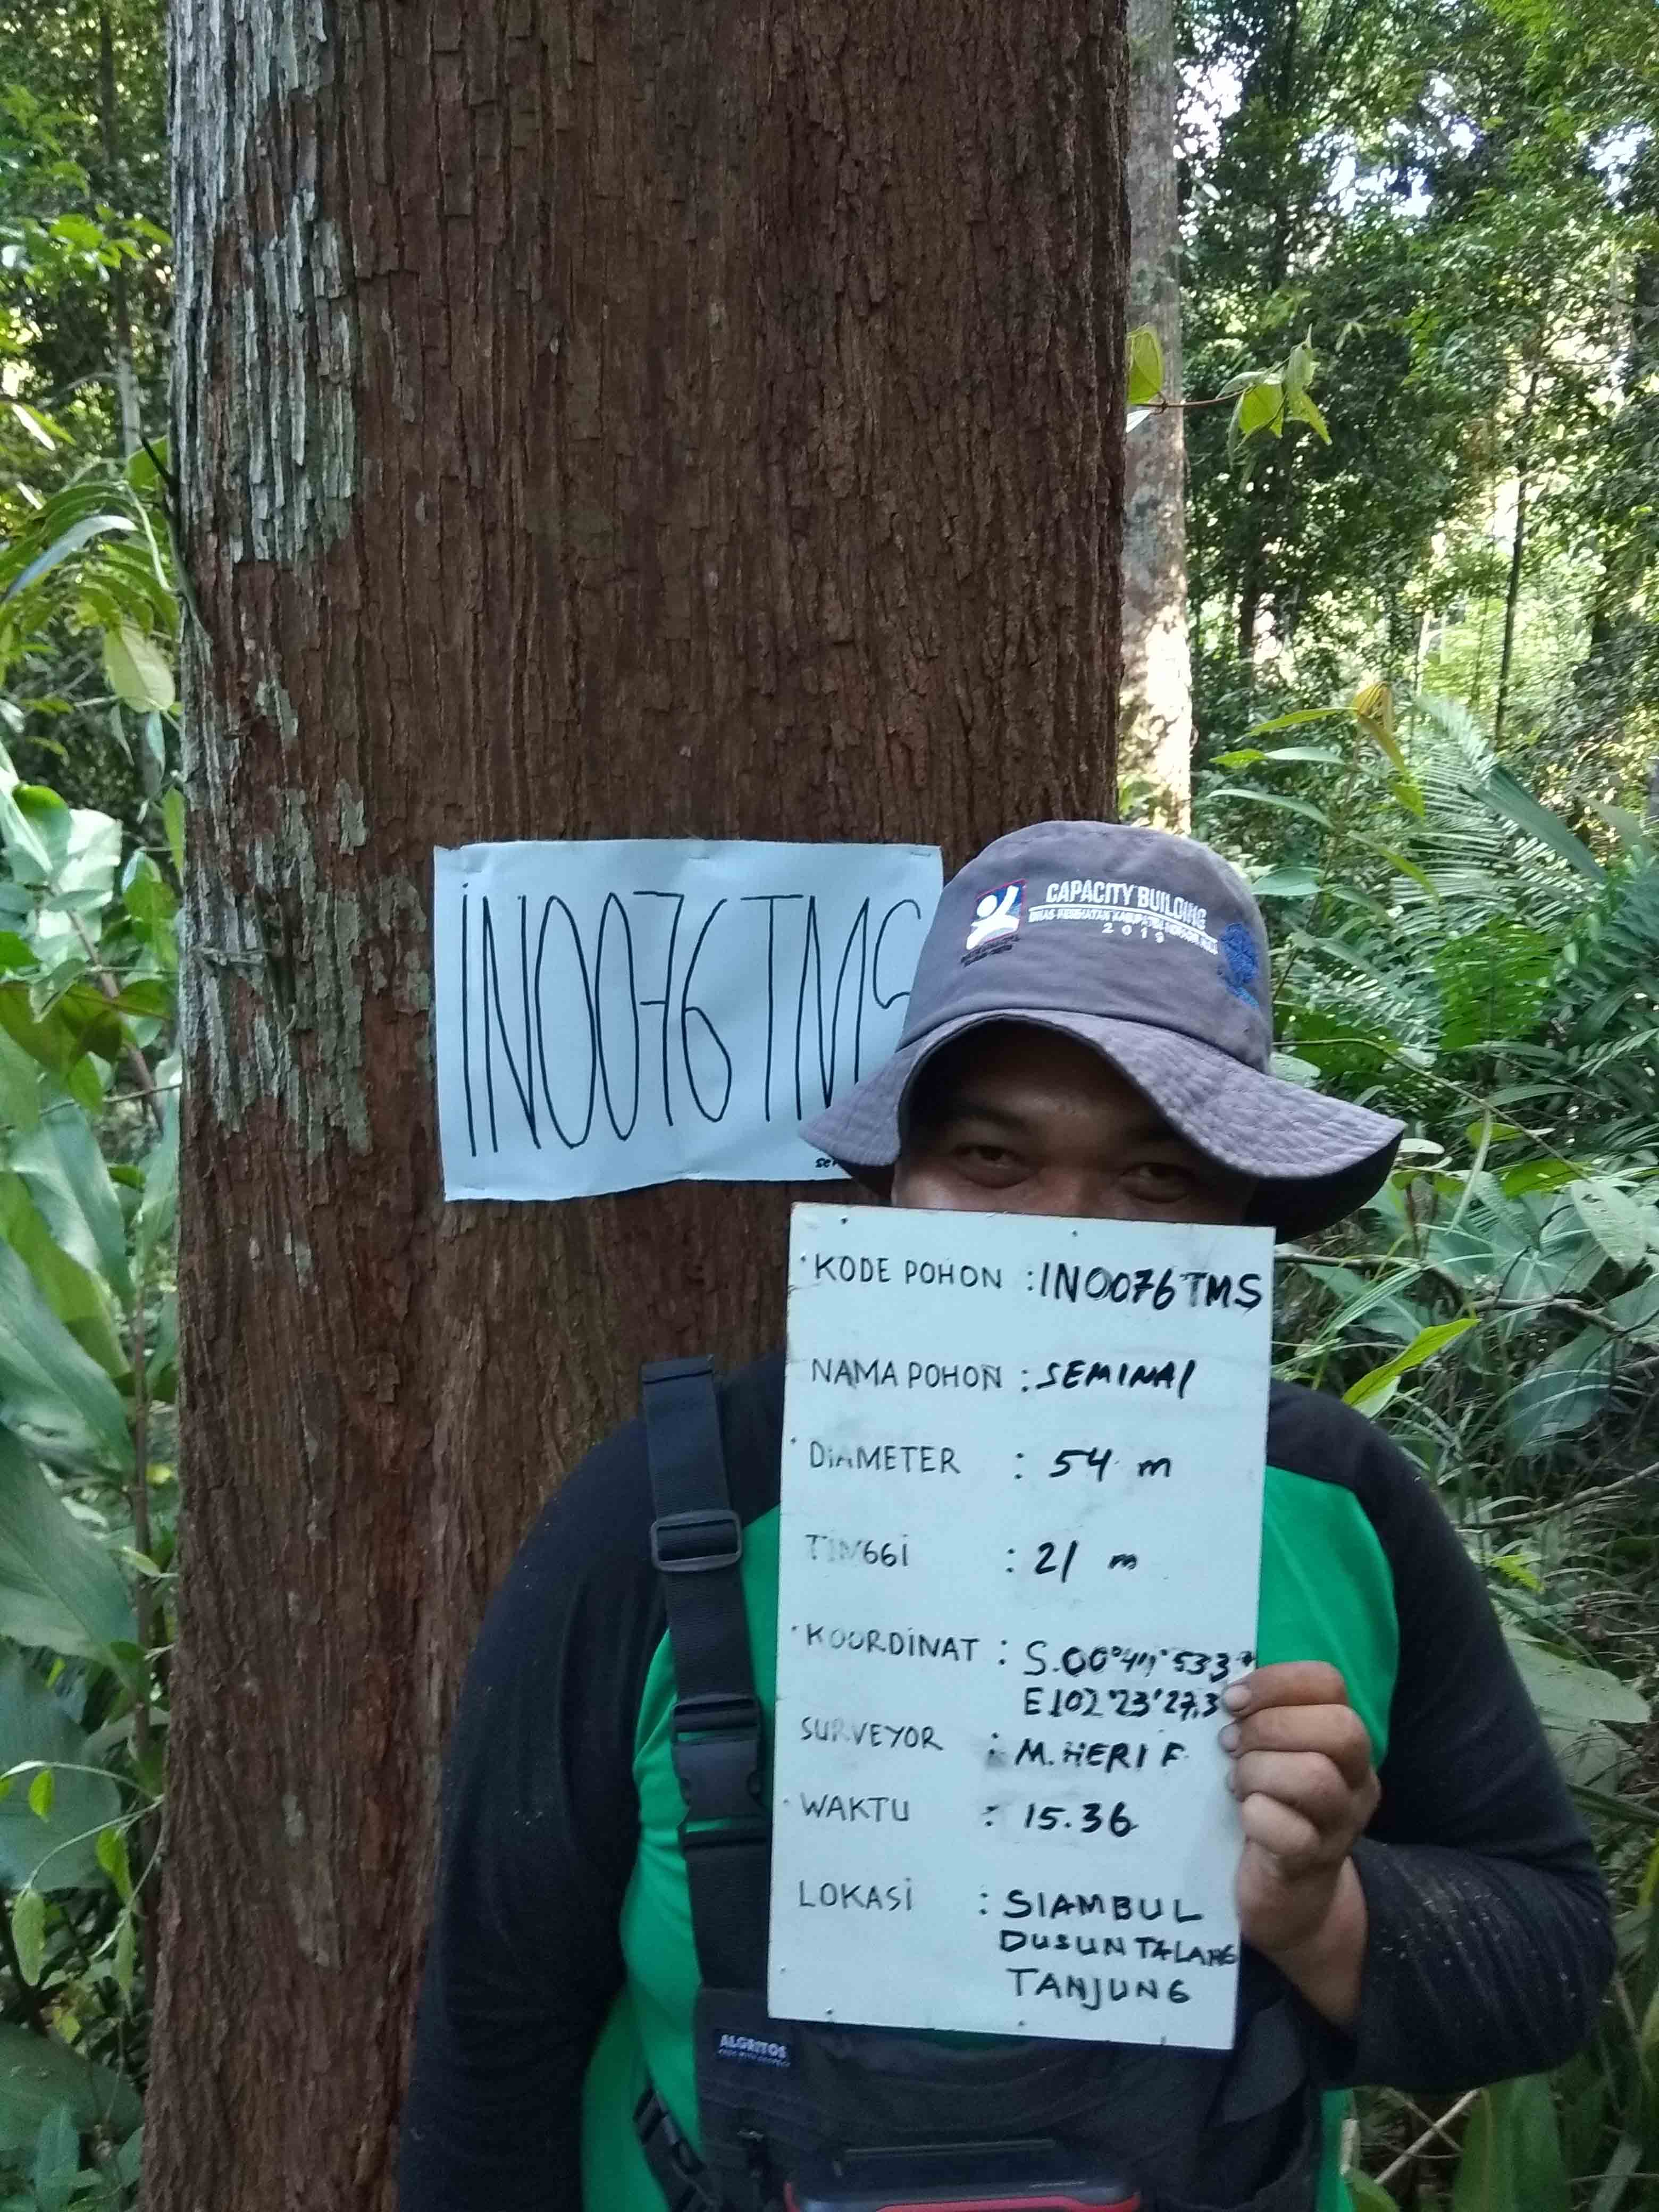 iN0076 TMS
CAPACITY BUILDING
2019
KODE POHON : IN0076 TMS
NAMA POHON : SEMINAI
DiAMETER : 54 m
TiNGGi : 21 m
KOORDiNAT :
E 102°23'27,3
SURVEYOR : M. HERI F.
WAKTU : 15.36
LOKASi : SIAMBUL
DUSUN TALANG
TANJUNG
ALGRITOS